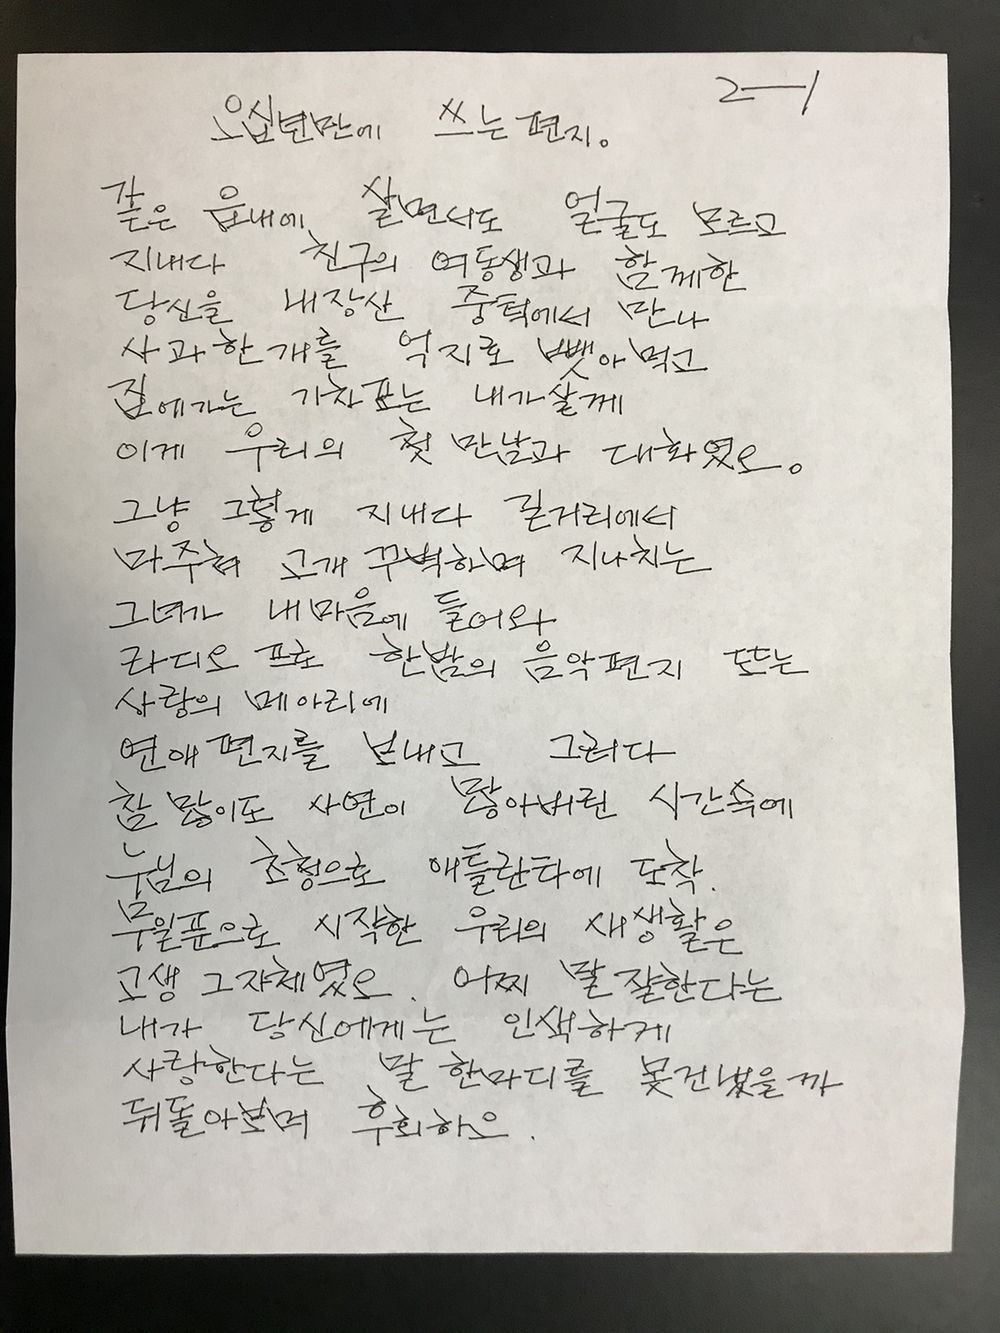 2-1
오십년만에 쓰는 편지.
같은 읍내에 살면서도 얼굴도 모르고
지내다 친구의 여동생과 함께한
당신을 내장산 중턱에서 만나
사과 한개를 억지로 뺏아 먹고
집에가는 기차표는 내가살께
이게 우리의 첫 만남과 대화였오.
그냥 그렇게 지내다 길거리에서
마주쳐 고개 꾸벅하며 지나치는
그녀가 내마음에 들어와
라디오 프로 한밤의 음악편지 또는
사랑의 메아리에
연애편지를 보내고 그러다
참 많이도 사연이 많아버린 시간속에
누님의 초청으로 애틀란타에 도착.
무일푼으로 시작한 우리의 새생활은
고생 그자체였오. 어찌 말 잘한다는
내가 당신에게는 인색하게
사랑한다는 말 한마디를 못건넸을까
뒤돌아보며 후회하오.